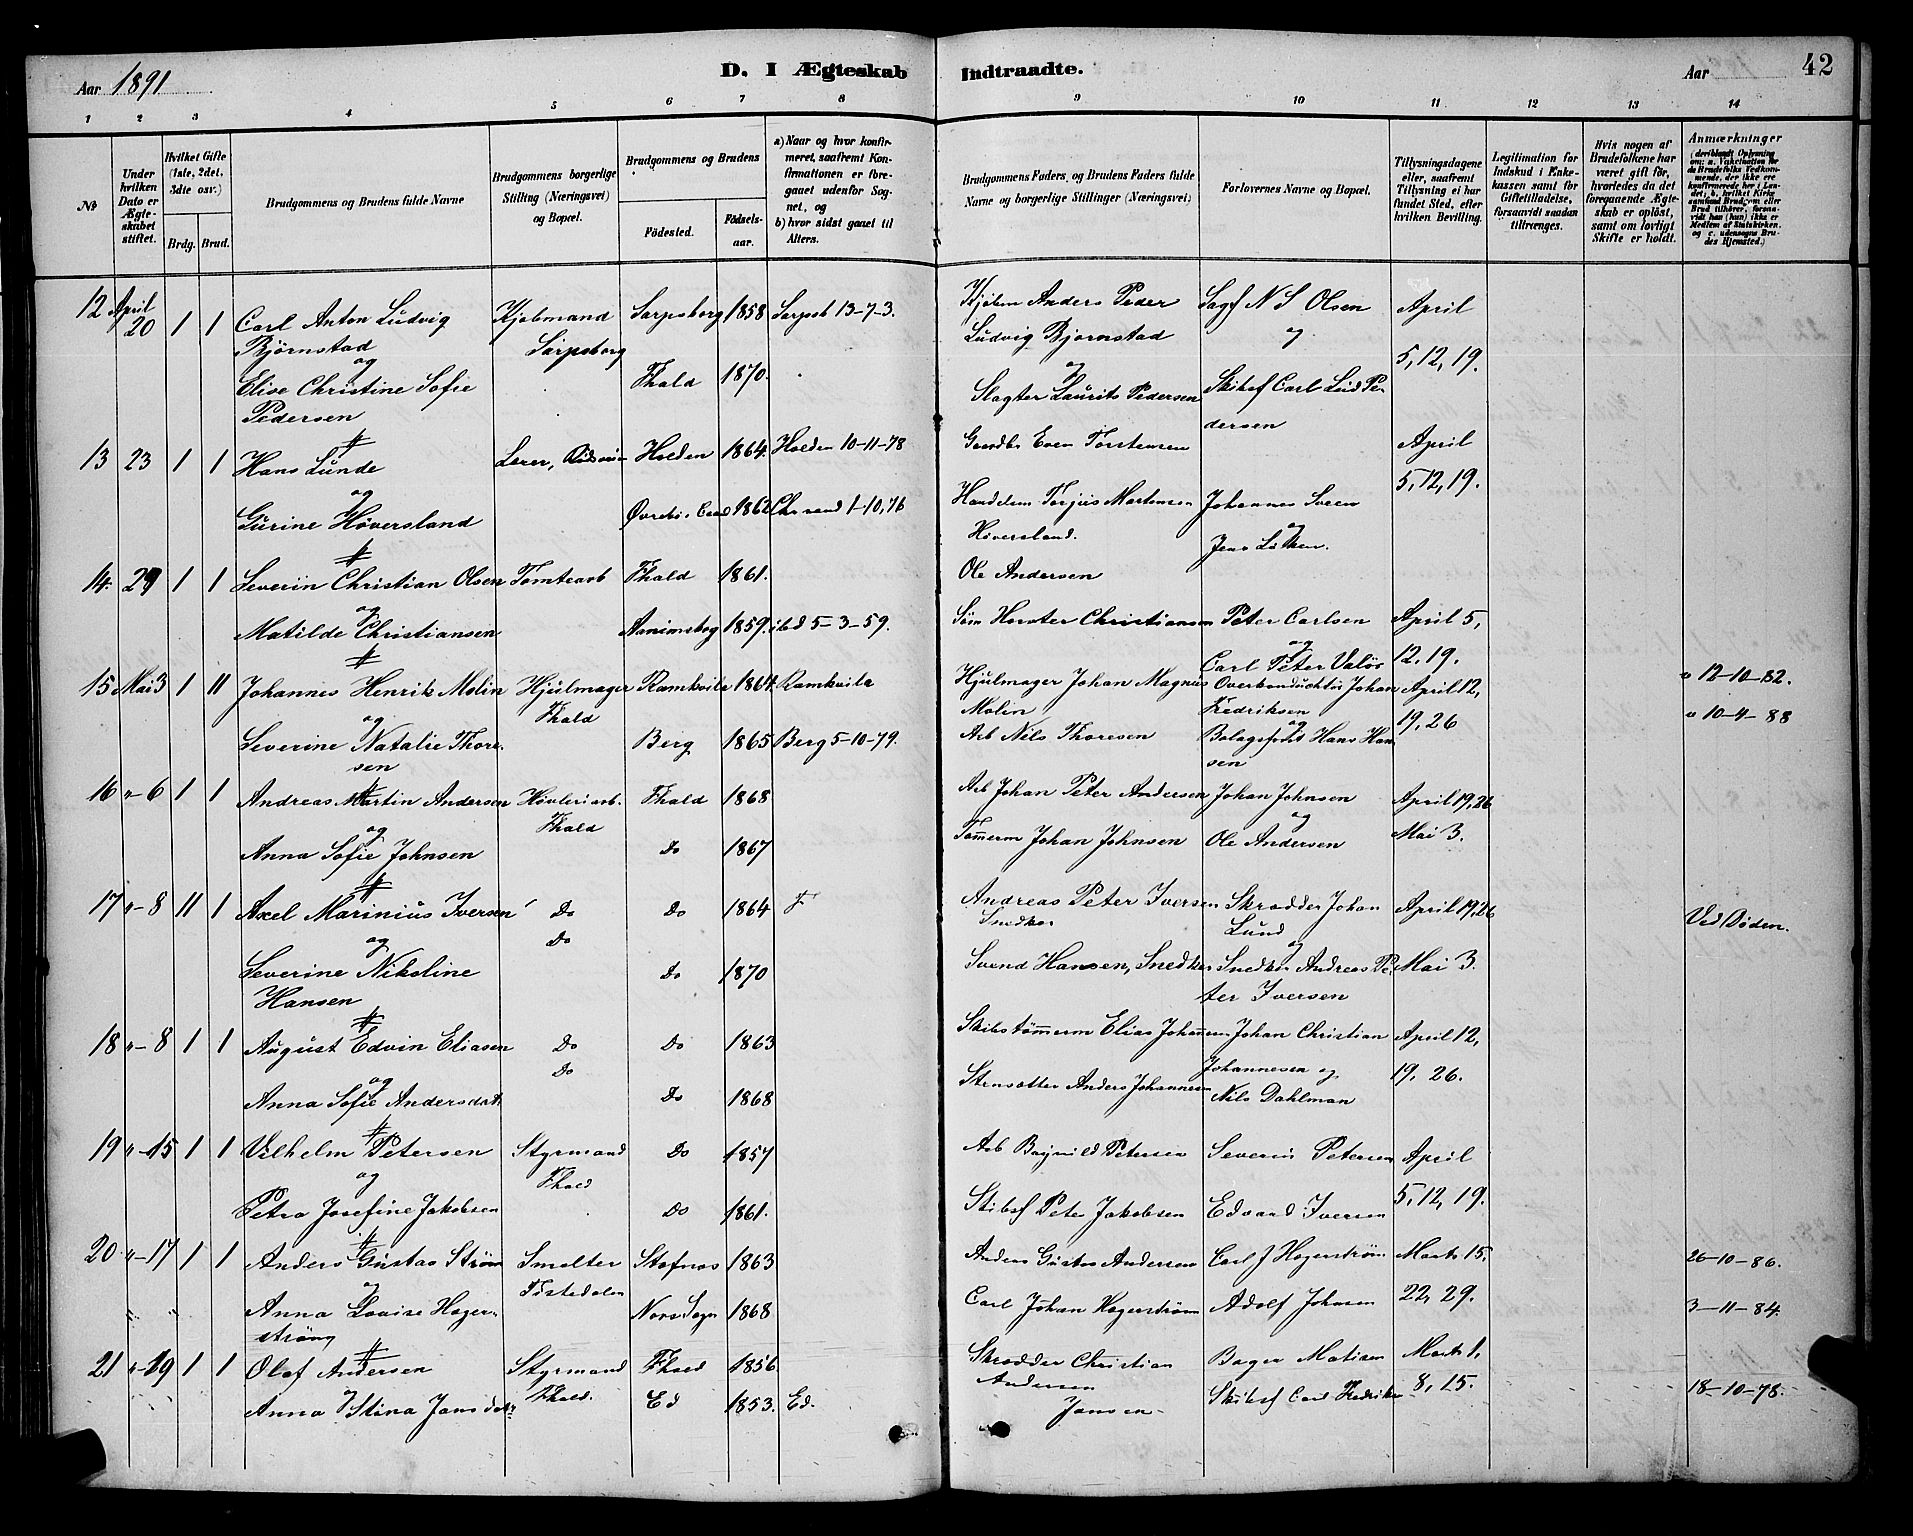 Aar 1891
D. I Ægteskab Indtraadte.
Aar
42
1 2 3 4 5 6 7 8 9 10 11 12 13 14
No
Under hvilken Dato er Ægteskabet stiftet.
Hvilket Gifte (1ste, 2det, 3dte osv.)
Brdg. Brud.
Brudgommens og Brudens fulde Navne
Brudgommens borgerlige Stilling (Næringsvei) og Bopæl.
Brudgommens og Brudens
Fødested.
Fødselsaar.
a) Naar og hvor konfirmeret, saafremt Konfirmationen er foregaaet udenfor Sognet, og
b) hvor sidst gaaet til Alters.
Brudgommens Faders, og Brudens Faders fulde Navne og borgerlige Stillinger (Næringsvei)
Forlovernes Navne og Bopæl.
Tillysningsdagene eller, saafremt Tillysning ei har fundet Sted, efter hvilken Bevilling.
Legitimation for Indskud i Enkekassen samt for Giftetilladelse, forsaavidt saadan tiltrænges.
Hvis nogen af Brudefolkene har været gift før, hvorledes da det foregaaende Ægteskab er opløst, samt om lovligt Skifte er holdt.
Anmærkninger (deriblandt Oplysning om: a. Vakcination for de Brudefolks Vedkommende, der ikke ere konfirmerede her i Landet; b. hvilket Kirkesamfund Brudgom eller Brud tilhører, forsaavidt han (hun) ikke er Medlem af Statskirken, og c. udensogns Brudes Hjemsted.)
12 April 20 1 1 Carl Anton Ludvig Bjørnstad Kjøbmand Sarpsborg Sarpsborg 1858 Sarpsb 13-7-3. Kjøbm Anders Peder Ludvig Bjornstad Sagf N S Olsen April
og
og
og 5, 12, 19.
Elise Christine Sofie Pedersen Fhald 1870. Slagter Laurits Pedersen Skibsf Carl Lud Pedersen
13 23 1 1 Hans Lunde Lærer, Holden 1864. Holden 10-11-78 Gaardbr Even Torstensen April
og 5, 12, 19.
Gurine Høversland Øvrebø 1862 Chrsand 1-10, 76 Torjus Martensen Høversland. Johannes Sveen
og
Jens
14. 29 1 1 Severiin Christian Olsen Tomtearb Fhald 1861. Ole Andersen
og
Matilde Christiansen 1859. ibd 5-3-59. Christiansen Peter Carlsen April 5,
og
Carl Peter Valør 12, 19.
15 Mai 3 1 11 Johannes Henrik Molin Hjulmager Fhald Ramkvila 1864. Ramkvila Hjulmager Johan Magnus Molin Johan Fredriksen April 12, " 12-10-82.
og
og 19, 26 " 10-4-88
Severine Natalie Thoresen Berg 1865 Berg 5-10-79. Arb Nils Thoresen Hans Hansen
16 "-6 1 1 Andreas Martin Andersen Høvleriarb. Fhald Fhald 1868 Arb Johan Peter Andersen Johan Johnsen April 19, 26
og
og
Anna Sofie Johnsen Do 1867 Tømerm Johan Johnsen Ole Andersen Mai 3.
17 "-8 11 1 Axel Marinius Iversen Do Do 1864 Andreas Peter Iversen Snedker Skrædder Johan Lund April 19, 26 Ved Døden.
og Do
og
Severine Nikoline Hansen Do 1870 Svend Hansen, Snedker Snedker Andreas Peter Iversen Mai 3.
18 "-8 1 1 August Edvin Eliasen Do Do 1863 Skibstømmerm Elias Johannesen Johan Christian Johannesen og April 12,
og Do
Anna Sofie Andersdat. Do 1868 Anders Johannesen Nils Dahlman 19, 26.
19 "-15 1 1 Vilhelm Petersen Styrmand Do 1857 Arb Petersen Severin Petersen April
og Fhald
Petra Josefine Jakobsen Do 1861. Skibsf Peter Jakobsen Edvard Iversen 5, 12, 19.
20 "-17 1 1 Anders Gustav Strøm Smelter Tistedalen Stafnæs 1863 Anders Gustav Andersen Carl J Hagerstrøm Marts 15, 26-10-86.
og
" " Anna Lovise Hagerstrøm Nors Sogn 1868 Carl Johan Hagerstrøm Adolf Johnsen 22, 29. 3-11-84.
21 "-19 1 1 Olaf Andersen Styrmand Fhald 1856 Skrædder Christian Andersen Bager Matisen Marts 1,
Anna Stina Jansdat. Fhald. Ed 1853. Ed. Jansen Skibsf Carl 8, 15. 18-10-78.